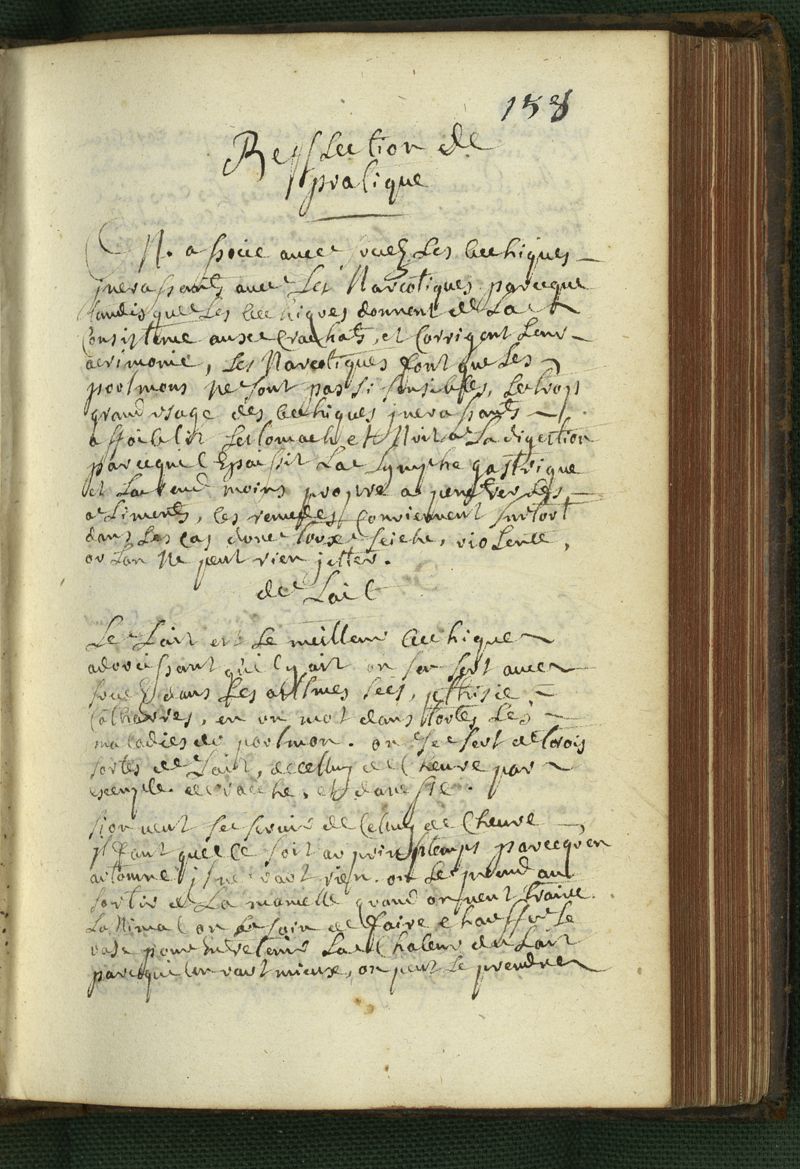 158
Refflection de
pratique
On associe avec succez les bechiques
incrassants avec les Narcotiques parceque
tandis que les bechiques donnent de la
Consistence aux Crachats, et Corrigent leur
acrimonie, les Narcotiques font que les
poolmons ne sont pas si sensibles, le trop
grand usage des bechiques incrassants
affoiblit lestomach et Noit a la digestion
parcequil Epaissit la lymphe gastrique
et la rend moins propre a penetrer les
aliments, ces remedes Conviennent surtout
dans les Cas d'une toux seiche, violente,
ou lon Ne peut rien jetter.
de Lait
Le Lait est le meilleur bechique
adoucissant quil y ait on sen sert avec
succez dans les asthmes secs, pthisie
Catharres, en un mot dans toutes les
maladies du poolmon. on se sert de trois
sortes de Lait, de celluy de Cheure par
exemple de vache, et danesse.
sion veut se servir de Celluy de Cheure
il faut quelle soit au printemps parcequen
automne il ne vaut rien. on le prend au
sortir de la mamelle quand on veut traire
lanimal on a soin de faire echauffer le
vase pour entretenir la Chaleur du Lait
parcequil en vaut mieux, on peut le prendre